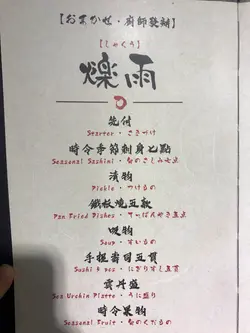 【おまかせ・廚師發辦】
【しゃくう】
爍雨
先付
Starter・さきづけ
時令季節刺身七點
Seasonal Sashimi・旬のさしみ七点
漬物
Pickle・つけもの
鐵板燒五款
Pan Fried Dishes・てっぱんやき五菜
吸物
Soup・すいもの
手握壽司五貫
Sushi 5 pcs・にぎりすし五貫
雲丹盛
Sea Urchin Platte・うに盛り
時令果物
Seasonal Fruit・旬のくだもの